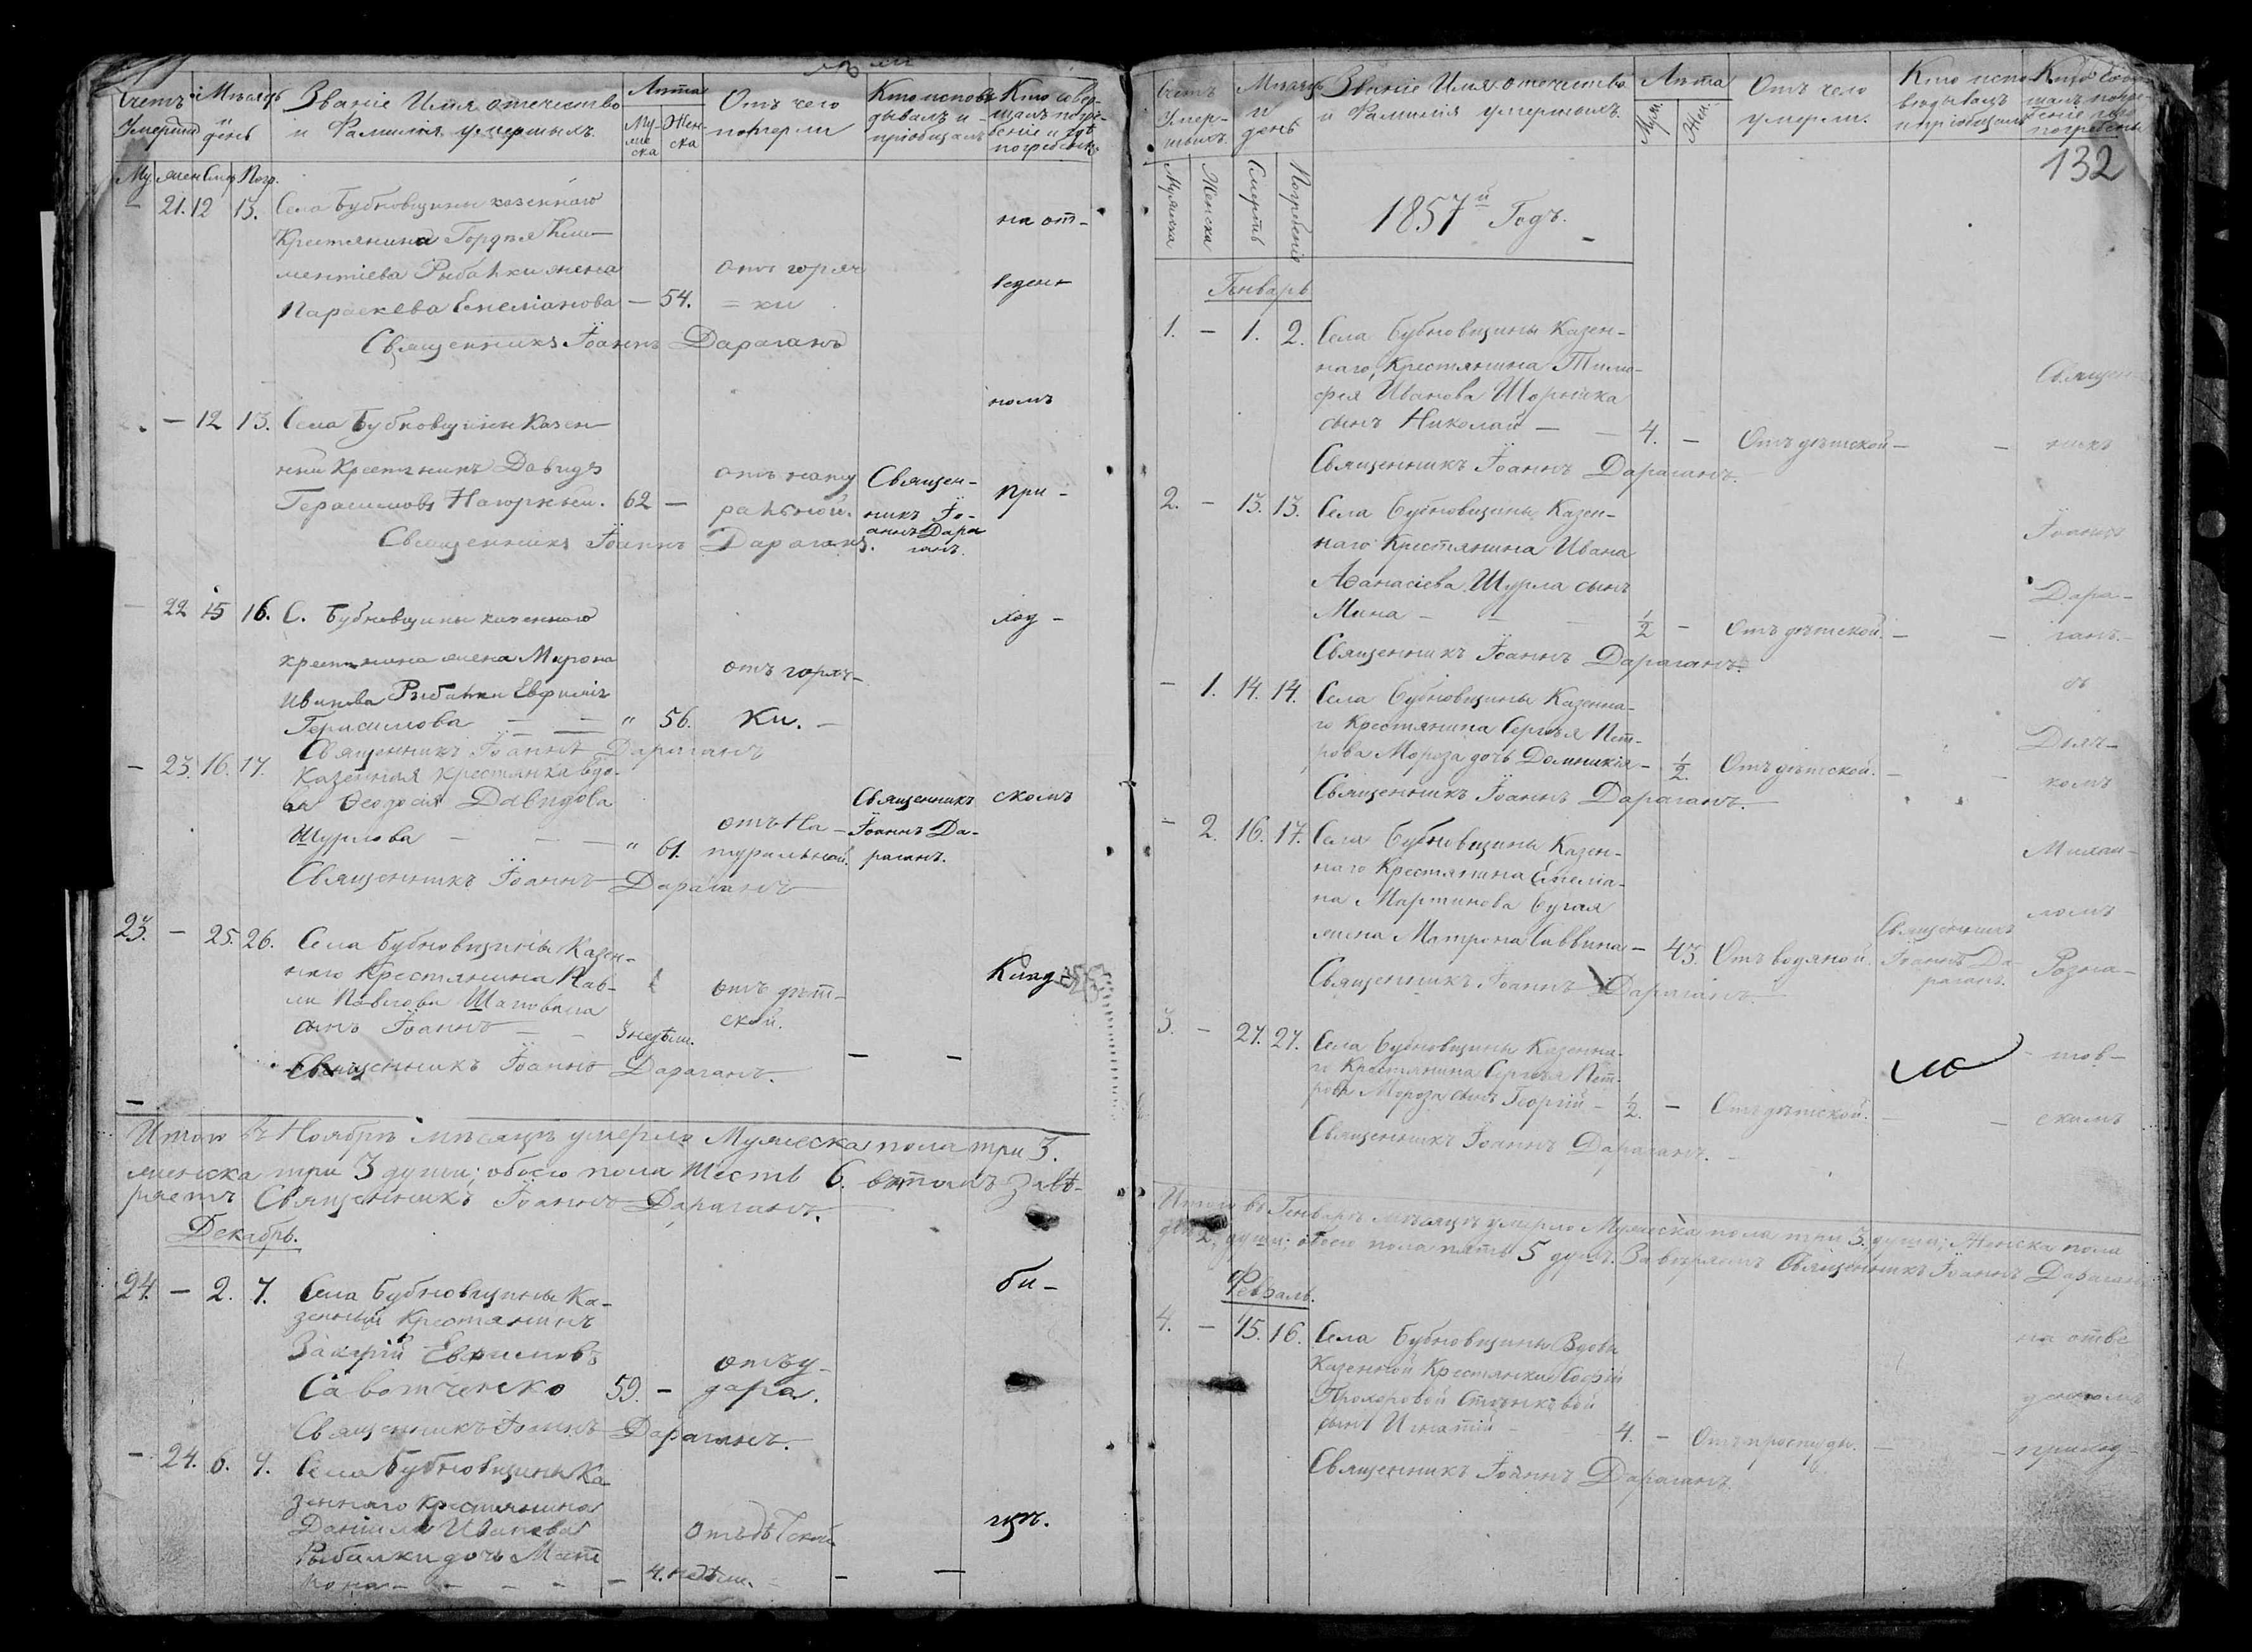 Счетъ Умерши
Мѣсяцъ и день
Званіе Имя отечество
и Фамилія умершихъ
Лѣта
Мужеска
Женска
Отъ чего
померли
Кто исповѣ-
дывалъ и
пріобщалъ
Кто совер-
шалъ погре-
беніе и гдѣ
погребены
Му. жен Смр Погр.
– 21. 12 13. Села Бубновщины казеннаго
Крестянина Гордѣя Кли-
ментіева Рыбалки жена
Параскева Емеліанова – 54.
отъ горяч
= ки
Священникъ Іоаннъ Дараганъ
на от-
веден-
номъ
– 12 13. Села Бубновщини Казен-
ний Крестянинъ Давидъ
Герасимовъ Нагорный. 62 –
отъ нату
ральной.
Священ-
никъ Іо-
аннъ Дара
ганъ.
при-
Священникъ Іоаннъ Дараганъ.
– 22 15 16. С. Бубновщины казеннаго
крестянина жена Мирона
Иванова Рыбалки Евфимія
Герасимова – – " 56.
отъ горяч-
ки. –
ход-
Священникъ Іоаннъ Дараганъ
– 23. 16. 17. Казенная крестянка вдо-
ва Ѳеодосія Давидова
Шурлова – – – " 61.
отъ На-
туральной.
Священникъ
Іоаннъ Да-
раганъ.
скомъ
Священникъ Іоаннъ Дараганъ
23. – 25. 26. Села Бубновщины Казен-
наго Крестянина Пав-
ла Павлова Шаповала
сынъ Іоаннъ – – 3 недѣли.
отъ дѣт-
ской.
– –
Клад-
Священникъ Іоаннъ Дараганъ.
Итого въ Ноябрѣ мѣсяцѣ умерло Мужеска пола три 3.
женска три 3 души; обоего пола шесть 6. въ томъ завѣ-
ряетъ Священникъ Іоаннъ Дараганъ.
Декабрь.
24. – 2. 4. Села Бубновщины Ка-
зенный Крестянинъ
Захарій Евфимовъ
Савотченко 59. –
отъ у-
дара.
би-
Священникъ Іоаннъ Дараганъ.
– 24. 6. 7. Села Бубновщины Ка
зеннаго Крестянина
Даніила Иванова
Рыбалки дочь Мат
рона – – – – – 4. недѣли.
отъ дѣтской
– –
щѣ.
Счетъ
Умер-
шихъ.
Мѣсяцъ
и
день
Званіе Имя отечество
и Фамилія умершихъ.
Лѣта
Муж.
Жен.
Отъ чего
умерли.
Кто испо-
вѣдывалъ
и пріобщалъ
Кто совер-
шалъ погре-
беніе и гдѣ
погребены
132
Мужеска
Женска
Смерть
Погребеніе
1857й Годъ.
Генварь
1. – 1. 2. Села Бубновщины Казен-
наго Крестянина Тимо-
фея Иванова Шорника
сынъ Николай – – 4. – Отъ дѣтской – –
Священ-
никъ
Священникъ Іоаннъ Дараганъ.
2. – 13. 13. Села Бубновщины Казен-
наго Крестянина Ивана
Аѳанасіева Шурла сынъ
Мина – – – 1/2 – Отъ дѣтской. – –
Іоаннъ
Дара-
ганъ.
Священникъ Іоаннъ Дараганъ.
– 1. 14. 14. Села Бубновщины Казенна-
го Крестянина Сергѣя Пет-
рова Мороза дочь Домникія – 1/2. Отъ дѣтской. – –
съ
Дьяч-
комъ
Священникъ Іоаннъ Дараганъ.
– 2. 16. 17. Села Бубновщины Казен-
наго Крестянина Емелія-
на Мартинова Бугая
жена Матрона Саввина – 43. Отъ водяной.
Священникъ
Іоаннъ Да-
раганъ.
Михаи-
ломъ
Розга-
Священникъ Іоаннъ Дараганъ.
3. – 27. 27. Села Бубновщины Казенна-
го Крестянина Сергѣя Пет-
рова Мороза сынъ Георгій – 1/2. – Отъ дѣтской. – –
тов-
скимъ
Священникъ Іоаннъ Дараганъ. –
Итого въ Генварѣ мѣсяцѣ умерло Мужеска пола три 3. души; Женска пола
двѣ 2, души; обоего пола пять 5 душъ. Завѣряетъ Священникъ Іоаннъ Дараганъ
Февраль.
4. – 15. 16. Села Бубновщины Вдовы
Казенной Крестянки Софіи
Прохоровой
сынъ Игнатій – 4. – Отъ простуды. – –
на отве
денномъ
приход-
Священникъ Іоаннъ Дараганъ.